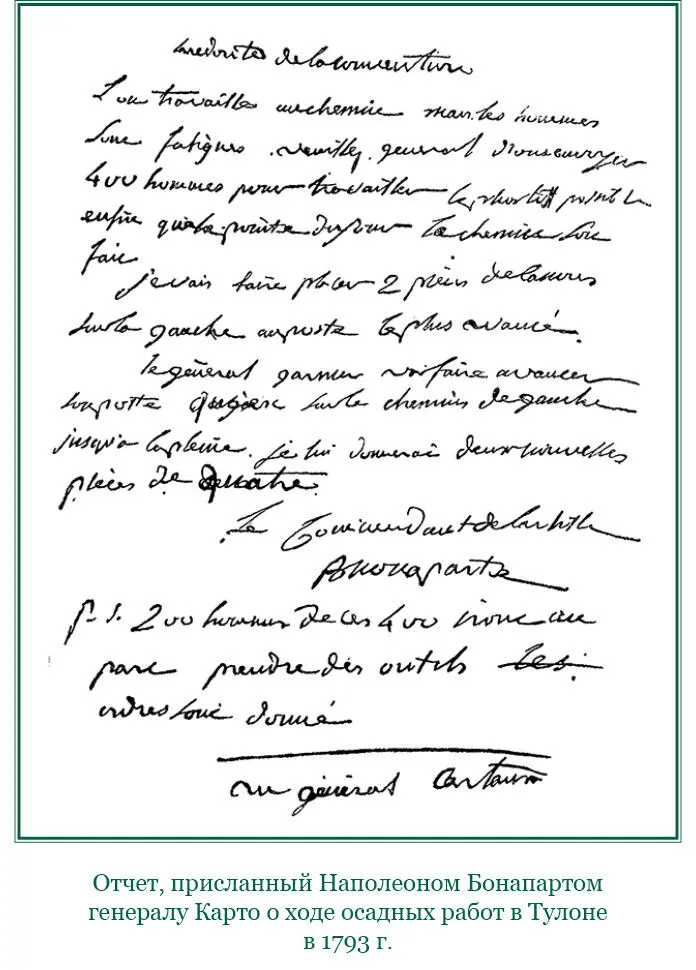 de la convention
L'on travaille au chemin mais les hommes
sont fatigues . veuillez general nous envoyer
400 hommes pour travailler
enfin qu'a la pointe du jour le chemin soit
fait
je vais faire placer 2 pièces de
sur la gauche au poste le plus avancé.
le général garnier va faire avancer
son poste sur le chemin de gauche
jusqu'a la pleine. je lui donnerai deux nouvelles
pièces de quatre.
Le Commandant de l'artille
Buonaparte
p.s. 200 hommes de ces 400 iront au
parc prendre des outils les
ordres sont donné
au général Cartaux
Отчет, присланный Наполеоном Бонапартом
генералу Карто о ходе осадных работ в Тулоне
в 1793 г.